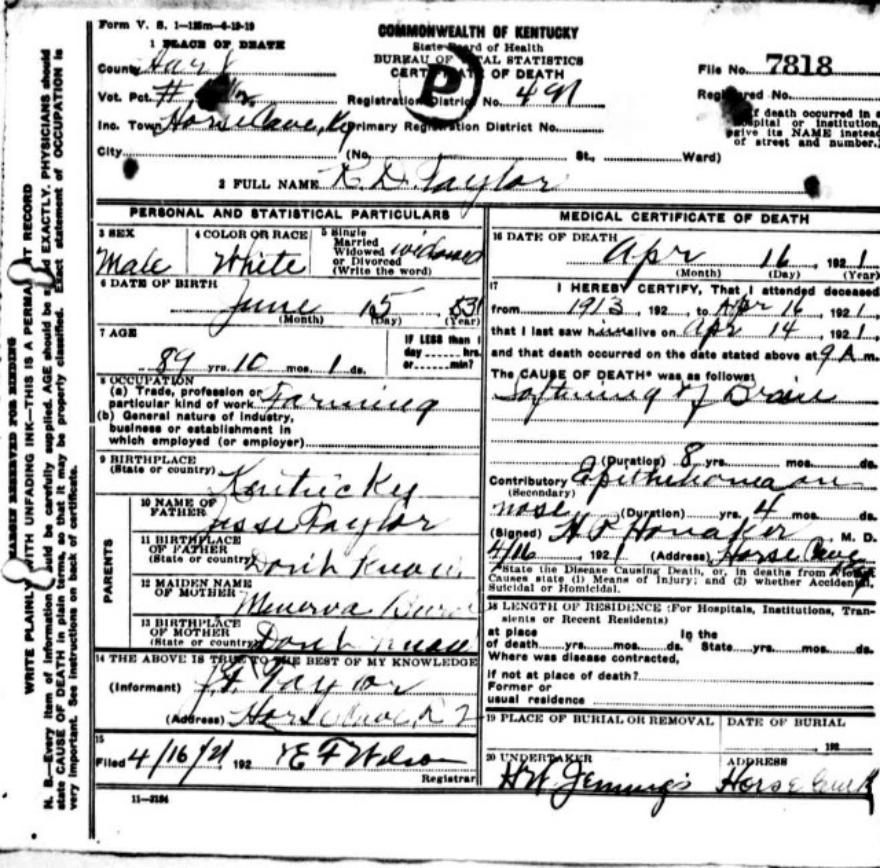 Form V. S. 1—125m—4-19-19
COMMONWEALTH OF KENTUCKY
State Board of Health
BUREAU OF VITAL STATISTICS
CERTIFICATE OF DEATH
1 PLACE OF DEATH
County Hart
File No. 7818
Vot. Pct. #
Registration District No. 491
Registered No.
Inc. Town Horse Cave, Ky
Primary Registration District No.
If death occurred in a
hospital or institution,
give its NAME instead
of street and number.
City (No. St., Ward)
2 FULL NAME R. D. Taylor
PERSONAL AND STATISTICAL PARTICULARS
3 SEX
Male
4 COLOR OR RACE
White
5 Single
Married
Widowed
or Divorced
(Write the word)
widowed
6 DATE OF BIRTH
June 15 831
(Month) (Day) (Year)
7 AGE
89 yrs. 10 mos. 1 ds.
IF LESS than 1
day ...... hrs.
or ...... min?
8 OCCUPATION
(a) Trade, profession or
particular kind of work Farming
(b) General nature of industry,
business or establishment in
which employed (or employer)
9 BIRTHPLACE
(State or country)
Kentucky
PARENTS
10 NAME OF
FATHER
Jesse Taylor
11 BIRTHPLACE
OF FATHER
(State or country) Don't Know
12 MAIDEN NAME
OF MOTHER
Minerva
13 BIRTHPLACE
OF MOTHER
(State or country) Don't Know
14 THE ABOVE IS TRUE TO THE BEST OF MY KNOWLEDGE
(Informant) Taylor
(Address) Horse Cave, R 2
15
Filed 4/16/21 192 E F Wilson
Registrar
11—3184
MEDICAL CERTIFICATE OF DEATH
16 DATE OF DEATH
Apr 16, 1921
(Month) (Day) (Year)
17 I HEREBY CERTIFY, That I attended deceased
from 1913, 192 , to Apr 16, 1921
that I last saw him alive on Apr 14, 1921
and that death occurred on the date stated above at 9 A m.
The CAUSE OF DEATH* was as follows:
Softning of Brain
(Duration) 8 yrs. mos. ds.
Contributory Epithelioma on
(Secondary)
nose (Duration) yrs. 4 mos. ds.
(Signed) H P Honaker M. D.
4/16, 1921 (Address) Horse Cave
*State the Disease Causing Death, or, in deaths from Violent
Causes state (1) Means of Injury; and (2) whether Accidental,
Suicidal or Homicidal.
18 LENGTH OF RESIDENCE (For Hospitals, Institutions, Tran-
sients or Recent Residents)
at place In the
of death yrs. mos. ds. State yrs. mos. ds.
Where was disease contracted,
if not at place of death?
Former or
usual residence
19 PLACE OF BURIAL OR REMOVAL
DATE OF BURIAL
192
20 UNDERTAKER
H W Jennings
ADDRESS
Horse Cave K
MARGIN RESERVED FOR BINDING
WRITE PLAINLY WITH UNFADING INK—THIS IS A PERMANENT RECORD
N. B.—Every item of information should be carefully supplied. AGE should be stated EXACTLY. PHYSICIANS should
state CAUSE OF DEATH in plain terms, so that it may be properly classified. Exact statement of OCCUPATION is
very important. See instructions on back of certificate.
P